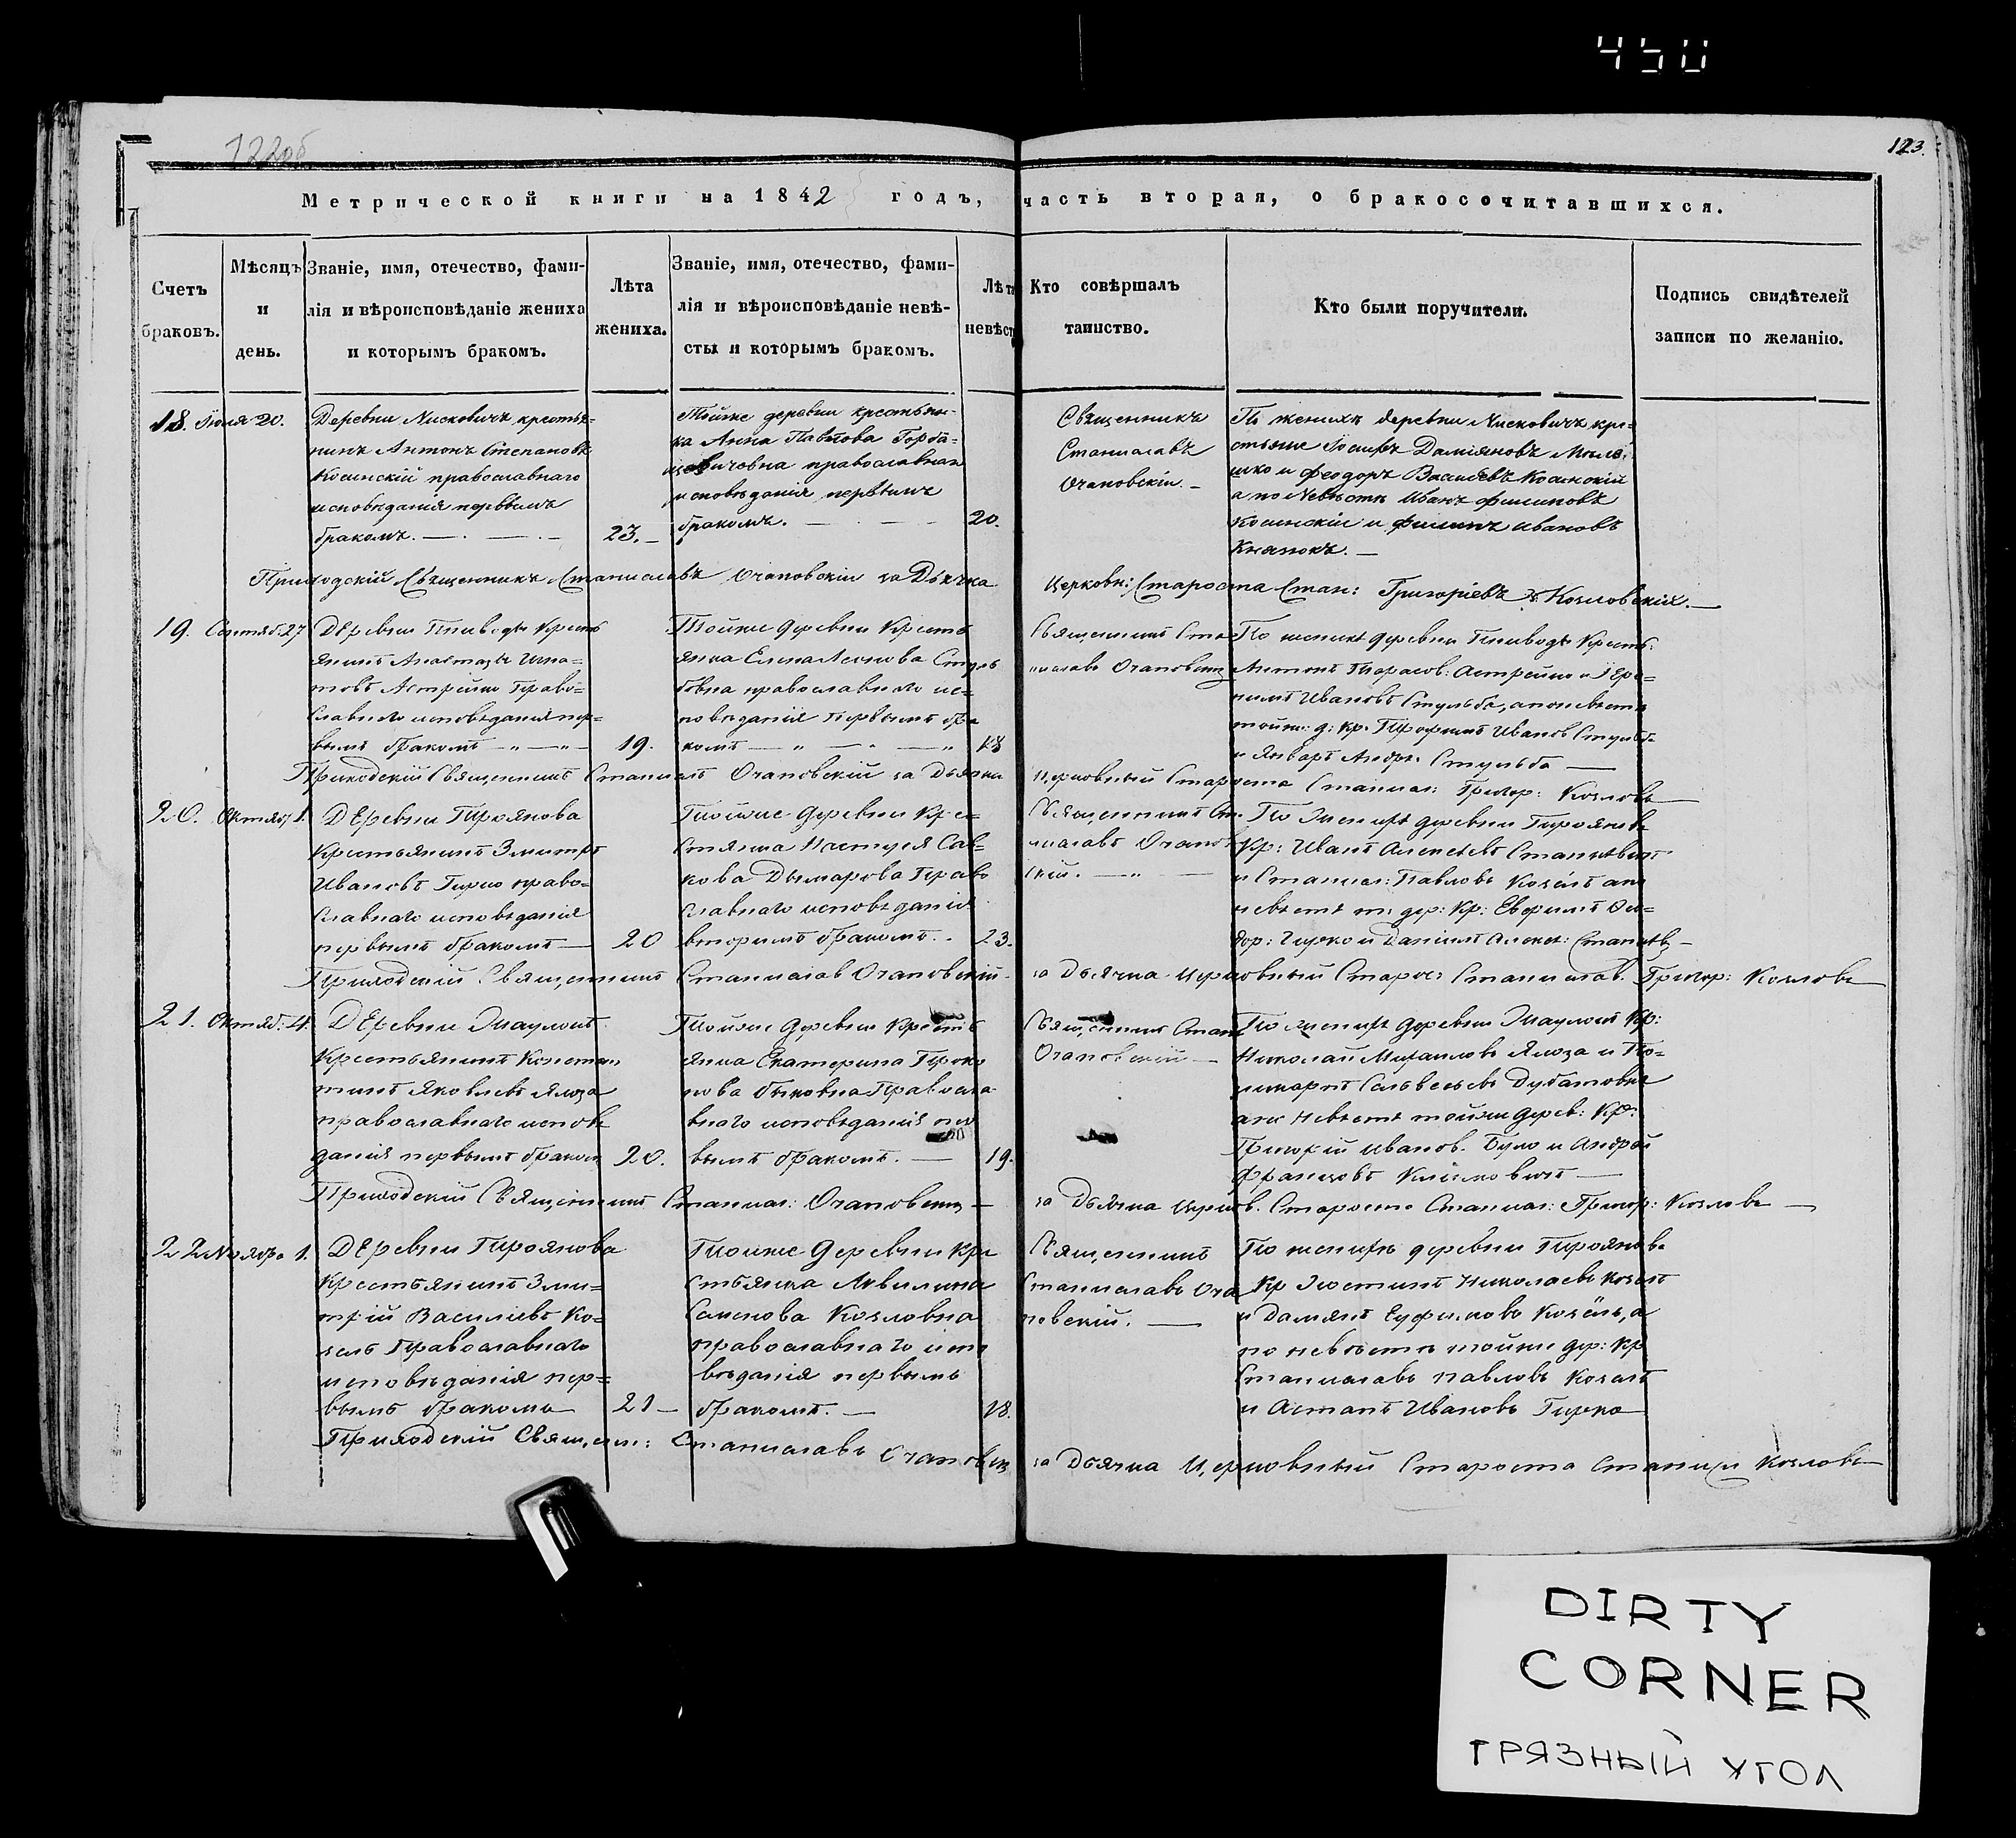 450
122об
123.
Метрической книги на 1842 годъ, часть вторая, о бракосочитавшихся.
Счетъ
браковъ.
Мѣсяцъ
и
день.
Званіе, имя, отечество, фами-
лія и вѣроисповѣданіе жениха
и которымъ бракомъ.
Лѣта
жениха.
Званіе, имя, отечество, фами-
лія и вѣроисповѣданіе невѣ-
сты и которымъ бракомъ.
Лѣта
невѣст
Кто совѣршалъ
таинство.
Кто были поручители.
Подпись свидѣтелей
записи по желанію.
18. Іюля 20.
Деревни Лисковичъ крестья-
нинъ Антонъ Степановъ
Косинскій православнаго
исповѣданія первымъ
бракомъ.
23.
Тойже деревни крестьян-
ка Анна Павлова Горба-
цевичовна православнаго
исповѣданія первымъ
бракомъ.
20.
Священникъ
Станиславъ
Очаповскій
По женихѣ деревни Лисковичъ кре-
стьяне Іосифъ Даміановъ
и Феодоръ Косинскій
а по невѣстѣ Иванъ Филиповъ
Косинскій и Филипъ Ивановъ
Приходскій Священникъ Станиславъ Очаповскій за Дьячка
Церковн: Староста Стан: Григоріевъ Козловскій.
19. Сентяб: 27
Деревни Пниводъ Кресть
янинъ Игна=
товъ Астрейко Право=
славнаго исповѣданія пер=
вымъ бракомъ
19.
Тойже деревни Кресть
янка Елена Стуль
бовна православнаго ис=
повѣданія первымъ бра
комъ
18
Священникъ Ста
ниславъ Очаповскій
По женихѣ деревни Пниводъ Кресть:
Антонъ Тарасов: Астрейко и Іеро=
нимъ Ивановъ Стульба, а по невѣстѣ
тойже: д: кр: Трофимъ Иванов Стульба
и Январъ Андре: Стульба
Приходскій Священникъ Станислав Очаповскій за Дьячка
Церковный Староста Станисл: Григор: Козловъ
20. Октябр 1.
Деревни Гироянова
Крестьянинъ Змитръ
Ивановъ Гирко право=
славнаго исповѣданія
первымъ бракомъ
20
Тойже деревни Кре=
стянка Настуся Сав=
кова Дымарова Право
славнаго исповѣданія
вторымъ бракомъ.
23.
Священникъ Ста
ниславъ Очапов
скій.
По Женихѣ деревни Гироянова
Кр: Иванъ Алексеевъ
и Станисл: Павловъ Козёлъ а по
невѣстѣ т: дер: Кр: Ефримъ Фи=
дор: Гирко и Даніилъ Алексе:
Приходскій Священникъ Станислав Очаповскій
за Дьячка Церковный Старос: Станислав. Григор: Козловъ
21. Октяб: 4.
Деревни
Крестьянинъ Констан
тинъ Яковлевъ Ялоза
православнаго исповѣ
данія первымъ браком
20.
Тойже деревни Кресть
янка Екатерина Проко
пова Быковна Правосла
внаго исповѣданія пер
вымъ бракомъ.
19.
Священникъ Стан
Очаповскій
По женихѣ деревни Кр:
Николай Михаиловъ Ялоза и По=
ликарпъ Сильвестевъ Дубатовка
а по невѣстѣ тойже дерев: Кр:
Григорій Иванов. и Андрей
Францовъ
Приходскій Священникъ Станисл: Очаповскій
за Дьячка Церков. Староста Станисл: Григор: Козловъ
22 Ноября 1.
Деревни Гироянова
Крестьянинъ Зми=
трій Василіевъ Ко=
зелъ Православнаго
исповѣданія пер=
вымъ бракомъ
21
Тойже Деревни Кре
стьянка Аквилина
Семенова Козловна
православнаго испо
вѣданія первымъ
бракомъ.
18.
Священникъ
Станиславъ Оча
повскій.
По женихѣ деревни Гироянова
Кр Юстинъ Николаевъ Козелъ
и Даміянъ Еуфимовъ Козёлъ, а
по невѣстѣ тойже дер: кр
Станиславъ Павловъ Козелъ
и Астапъ Ивановъ Гирко
Приходскій Священ: Станиславъ Очаповскій
за Дьячка Церковный Староста Козловъ
DIRTY
CORNER
ГРЯЗНЫЙ УГОЛ